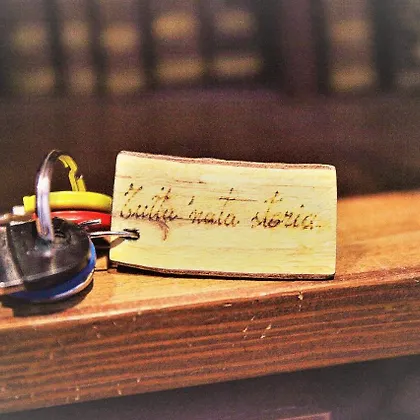 Tutta 'nata storia